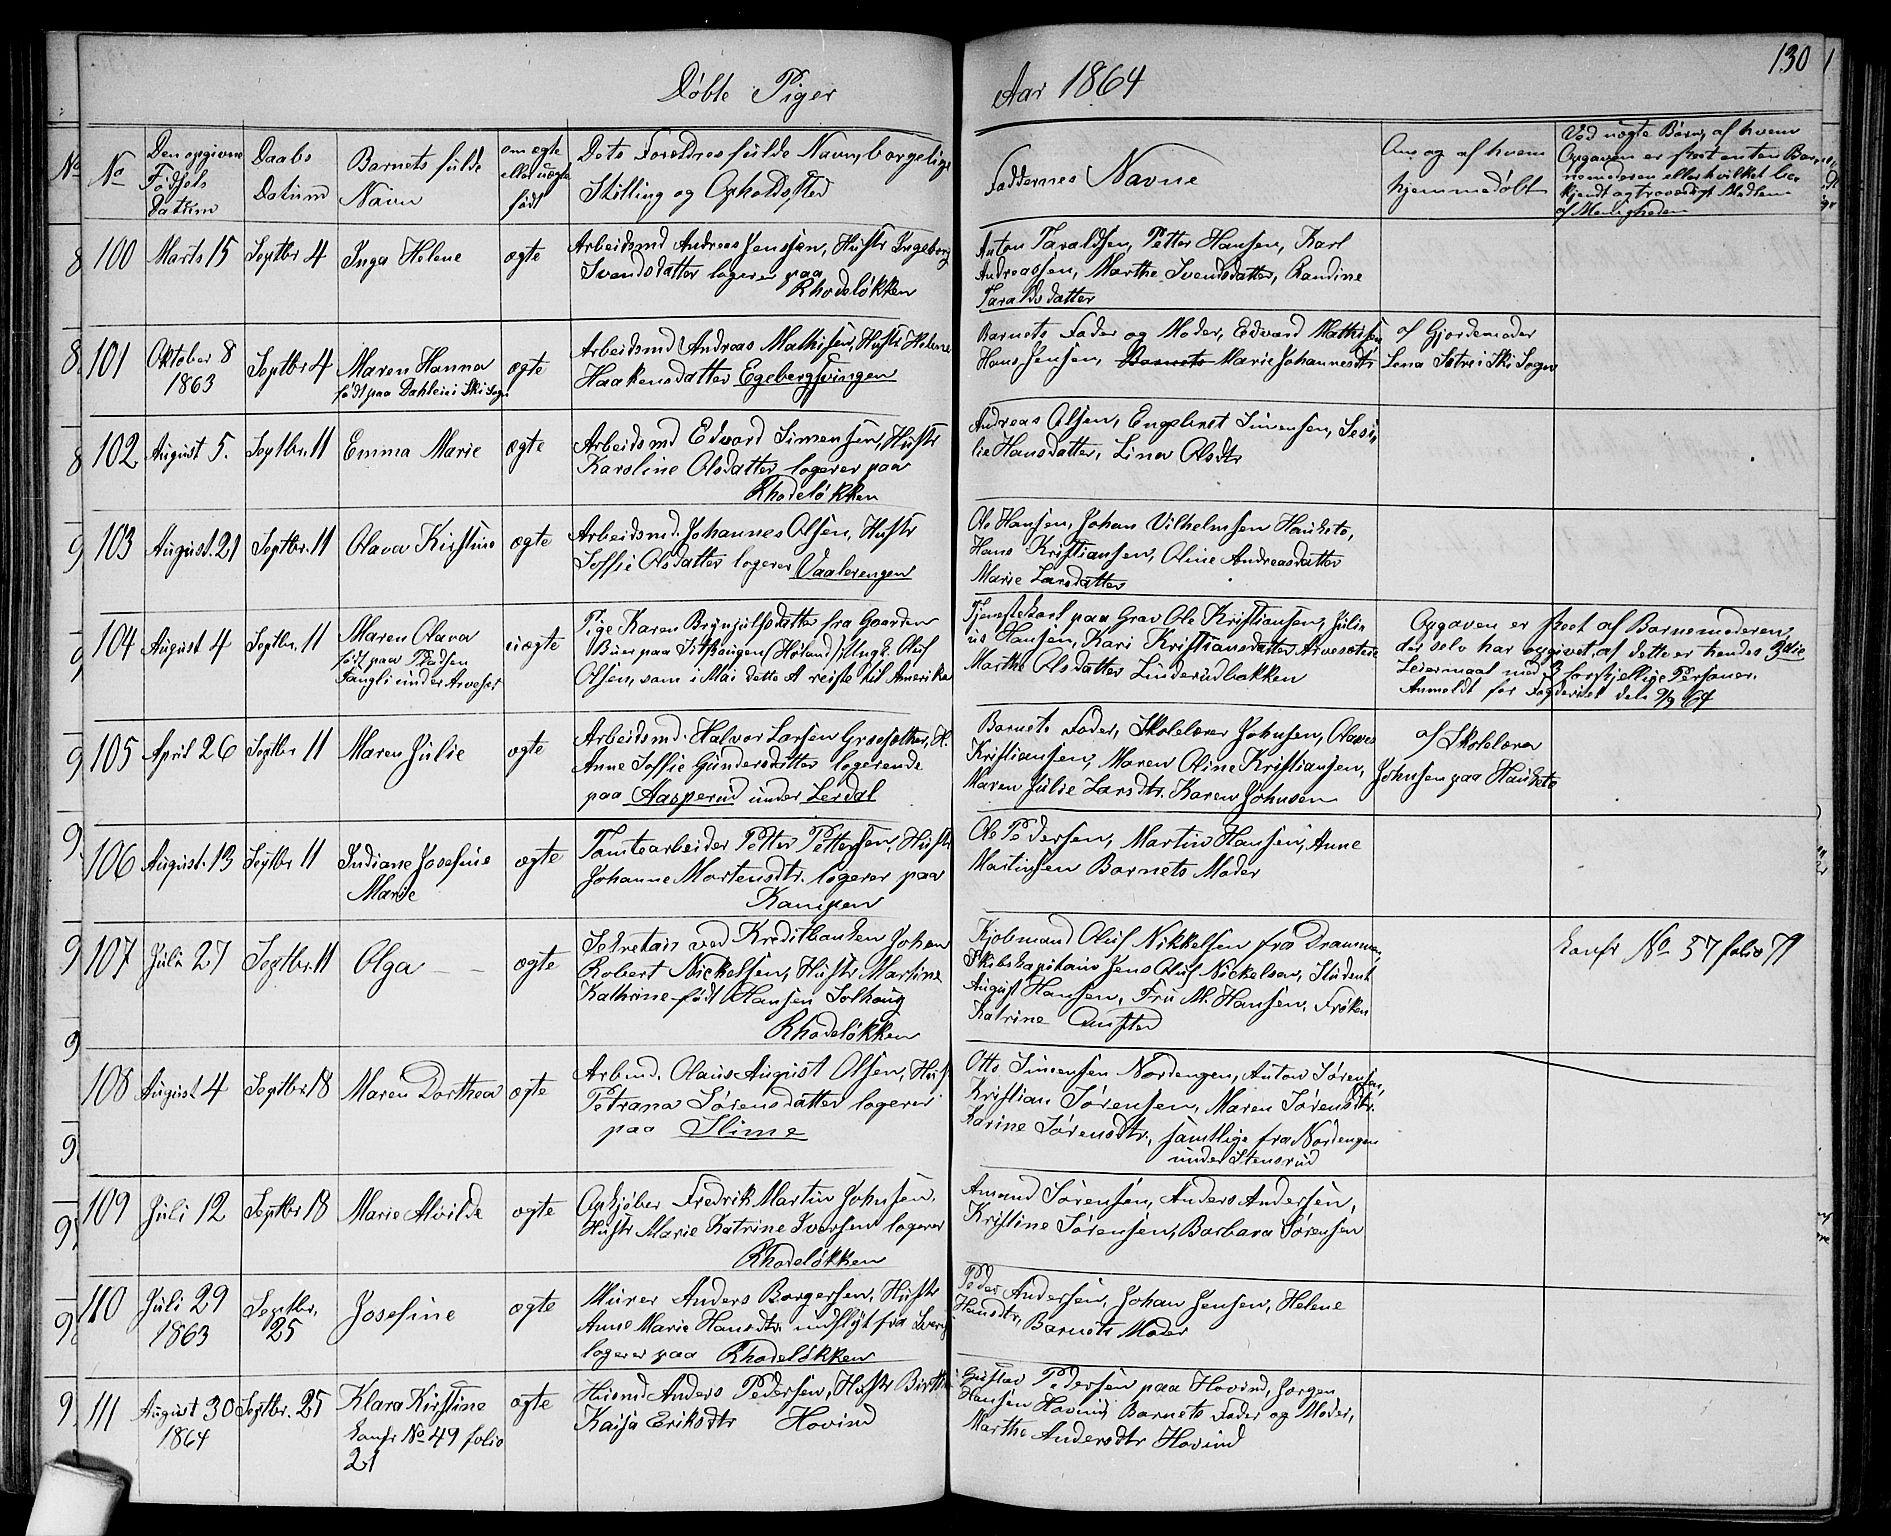 Døbte Piger
Aar 1864
130
No
Den opgivne Fødsels Datum
Daabs Datum
Barnets fulde Navn
om ægte eller uægte født
Dets Foreldres fulde Navn, borgelige Stilling og Opholdssted
Faddernes Navne
Om og af hvem hjemmedøbt
Ved uægte Børn, af hvem Opgaven er skeet enten Barnemoderen eller hvilket bekjendt og troværdigt Medlem af Menigheden
100 Marts 15 Septbr 4 Inga Helene ægte
Arbeidsmd Andreas Jenssen, Hustr Ingeborg
Svendsdatter logerer paa
Rhodeløkken
Anton Taraldsen, Petter Hansen, Karl
Andreassen, Marthe Svendsdatter, Randine
Taraldsdatter
101 Oktober 8 1863 Septbr 4 Maren Hanna ægte
født paa Dahlen i Ski Sogn
Arbeidsmd Andreas Mathisen, Hustr Helene
Haakensdatter Egebergsvingen
Barnets Fader og Moder, Edvard Mathisen
Hans Jensen, Barnets Marie Johannesdtr
af Gjordemoder
Lena Sætre i Ski Sogn
102 August 5. Septbr. 11 Emma Marie ægte
Arbeidsmd Edvard Simensen, Hustr
Karoline Olsdatter logerer paa
Rhodeløkken
Andreas Olsen, Engebret Simensen, Sesi
lie Hansdatter, Lina Olsdtr
103 August. 21 Septbr. 11 Olava Kirstine ægte
Arbeidsmd. Johannes Olsen, Hustr
Soffie Olsdatter logerer Vaalerengen
Ole Hansen, Johan Vilhelmsen Hauketo,
Hans Kristiansen, Oline Andreasdatter
Marie Larsdatter
104 August 4 Septbr. 11 Maren Olava uægte
født paa Pladsen
Tangli under Arveset
Pige Karen Brynjulfsdatter fra Gaarden
Bøier paa Sitskougen Høland, Ungk. Oluf
Olsen, som i Mai dette A reiste til Amerika
Tjenestekarl paa Grav Ole Kristiansen, Juli
us Hansen, Kari Kristiansdatter Arvesætere
Marthe Olsdatter Linderudbakken
Opgaven er skeet af Barnemoderen,
der selv har opgivet, af dette er hendes 3die
Leiermaal med 3 forskjellige Personer.
Anmeldt for Fogderiet den 9/9 64
105 April 26 Septbr 11 Maren Julie ægte
Arbeidsmd. Halvor Larsen Græsæther, H.
Anne Soffie Gundersdatter logerende
paa Aasperud under Lerdal
Barnets Fader, Skolelærer Johnsen, Olaves
Kristiansen, Maren Oline Kristiansen,
Maren Julie Larsdtr. Karen Johnsen
af Skolelærer
Johnsen paa Hauketo
106 August. 13 Septbr 11 Indiane Josefine Marie ægte
Tomtearbeider Petter Pettersen, Hustr
Johanne Mortensdtr. logerer paa
Kampen
Ole Pedersen, Martin Hansen, Anne
Martinsen Barnets Moder
107 Juli 27 Septbr. 11 Olga ægte
Sekretair ved Kreditbanken Johan
Robert Nickelsen, Hustr Martine
Kathrine født Hansen Solhaug
Rhodeløkken
Kjøbmand Oluf Nikkelsen fra Drammen,
Skibskapitain Jens Oluf Nickelsen, Student
August Hansen, Fru M. Hansen, Frøken
Katrine
Konfr No 57 folio 71
108 August 4 Septbr 18 Maren Dorthea ægte
Arbmd. Olaus August Olsen, Hus
Petrana Sørensdatter logerer
paa Slime
Otto Simensen Nordengen, Anton Sørensen,
Kristian Sørensen, Maren Sørensdtr.
Karine Sørensdtr., samtlige fra Nordengen
under Stensrud
109 Juli 12 Septbr 18 Marie Alvilde ægte
Opkjøber Fredrik Martin Johnsen.
Hustr Marie Katrine Iversen logerer
Rhodeløkken
Amund Sørensen, Anders Andersen,
Kristine Sørensen, Barbara Sørensen
110 Juli 29 1863 Septbr. 25 Josefine ægte
Murer Anders Borgersen, Hustr
Anne Marie Hansdtr. indflyt fra Sverig
logerer paa Rhodeløkken
Peder Andersen, Johan Jensen, Helene
Hansdtr, Barnets Moder
111 August 30 1864 Septbr. 25 Klara Kirstine ægte
Konfr No 49 folio
21
Husmd Anders Pedersen, Hustr Birthe
Kaisa Eriksdtr Hovind
Gustav Pedersen paa Hovind, Jørgen
Hansen Hovind, Barnets Fader og Moder,
Marthe Andersdtr Hovind